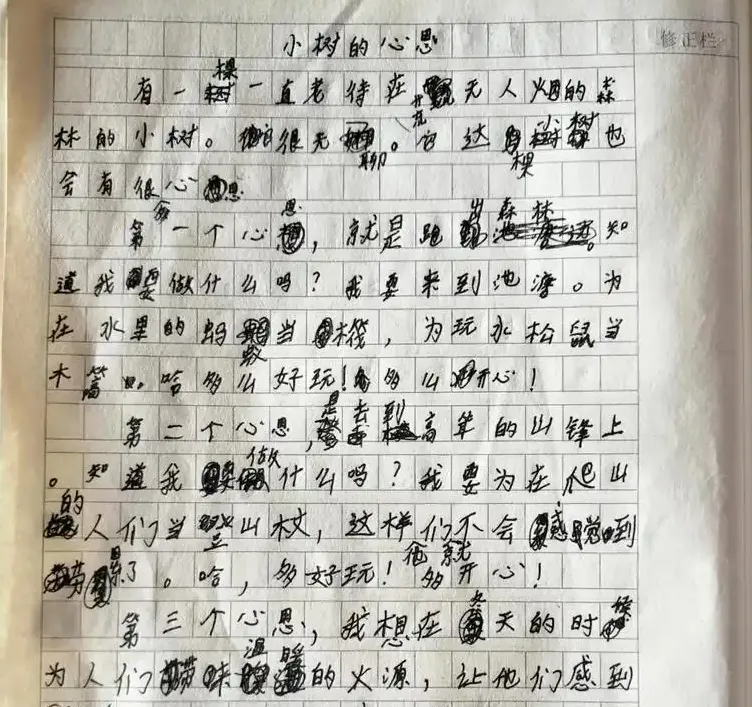 小树的心思
修正栏
有一棵一直老待在无人烟的森
林的小树。它很无聊。它达棵小树也
会有很心思
第一个心思，就是跑出森林。知
道我要做什么吗？我要来到池塘。为
在水里的蚂蚁当機，为玩水松鼠当
木筏。哈多么好玩！多么开心！
第二个心思，是去到高耸的山锋上
。知道我要做什么吗？我要为在爬山
的人们当登山杖，这样他们就不会感觉到
劳累了。哈，多好玩！多开心！
第三个心思，我想在冬天的时候
为人们带味温暖的火源，让他们感到